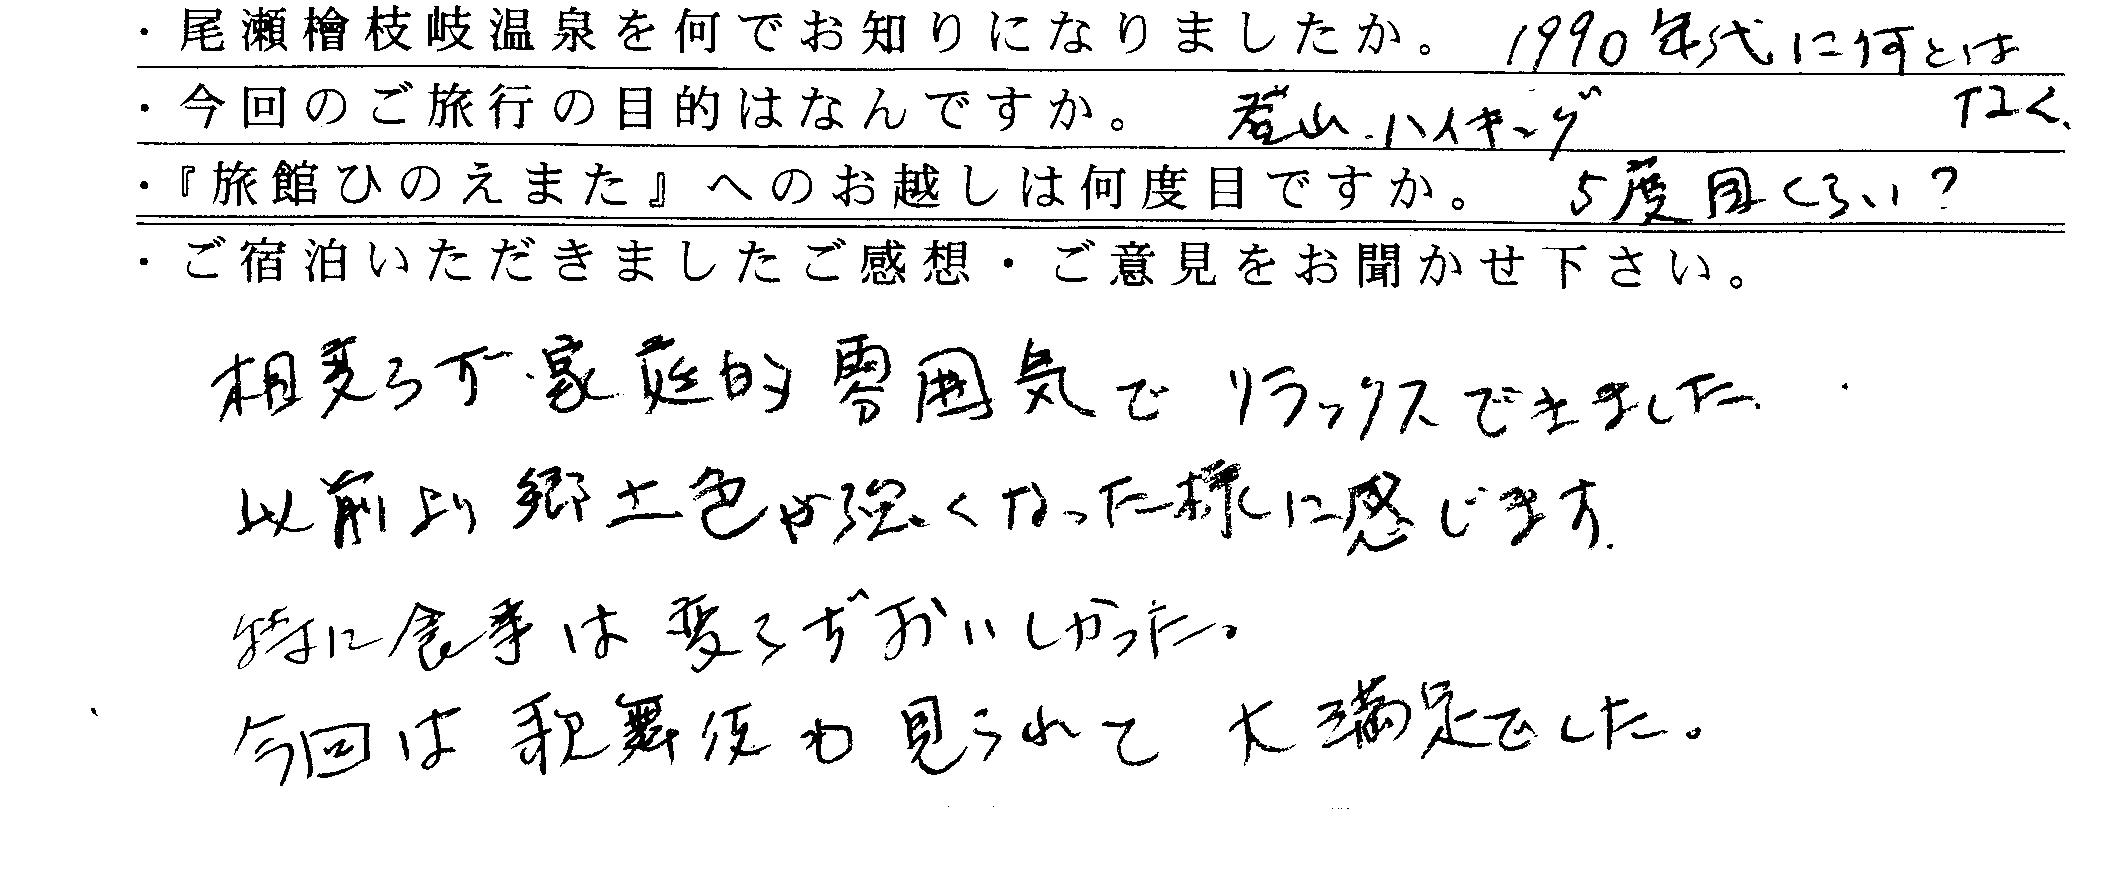 ・尾瀬檜枝岐温泉を何でお知りになりましたか。 1990年代に何とは
なく、
・今回のご旅行の目的はなんですか。 登山・ハイキング
・『旅館ひのえまた』へのお越しは何度目ですか。 5度目くらい？
・ご宿泊いただきましたご感想・ご意見をお聞かせ下さい。
相変らず家庭的雰囲気でリラックスできました。
以前より郷土色が強くなった様に感じます。
特に食事は変らずおいしかった。
今回は歌舞伎も見られて大満足でした。